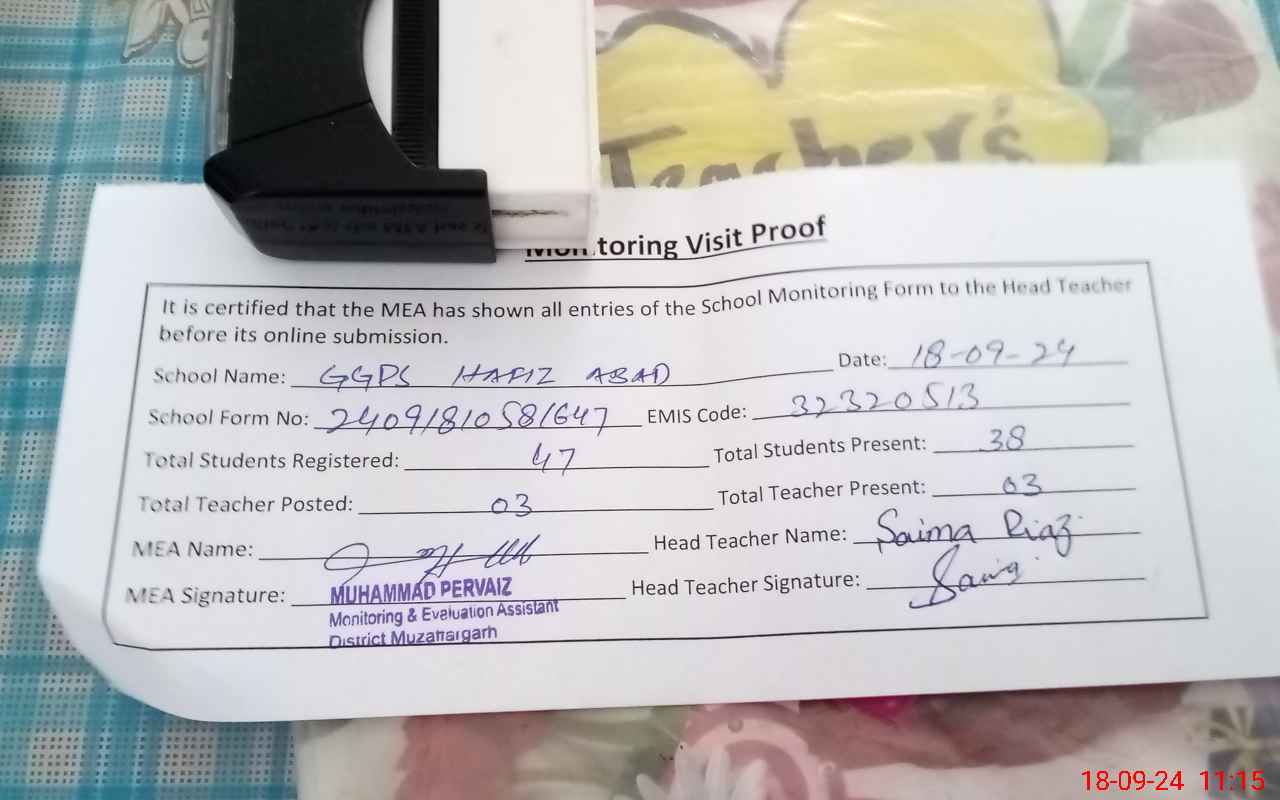 Teacher's
Monitoring Visit Proof
It is certified that the MEA has shown all entries of the School Monitoring Form to the Head Teacher
before its online submission.
School Name: GGPS HAFIZ ABAD Date: 18-09-24
School Form No: 24091810581647 EMIS Code: 32320513
Total Students Registered: 47 Total Students Present: 38
Total Teacher Posted: 03 Total Teacher Present: 03
MEA Name: Head Teacher Name: Saima Riaz
MEA Signature: MUHAMMAD PERVAIZ Head Teacher Signature:
Monitoring & Evaluation Assistant
District Muzaffargarh
18-09-24 11:15